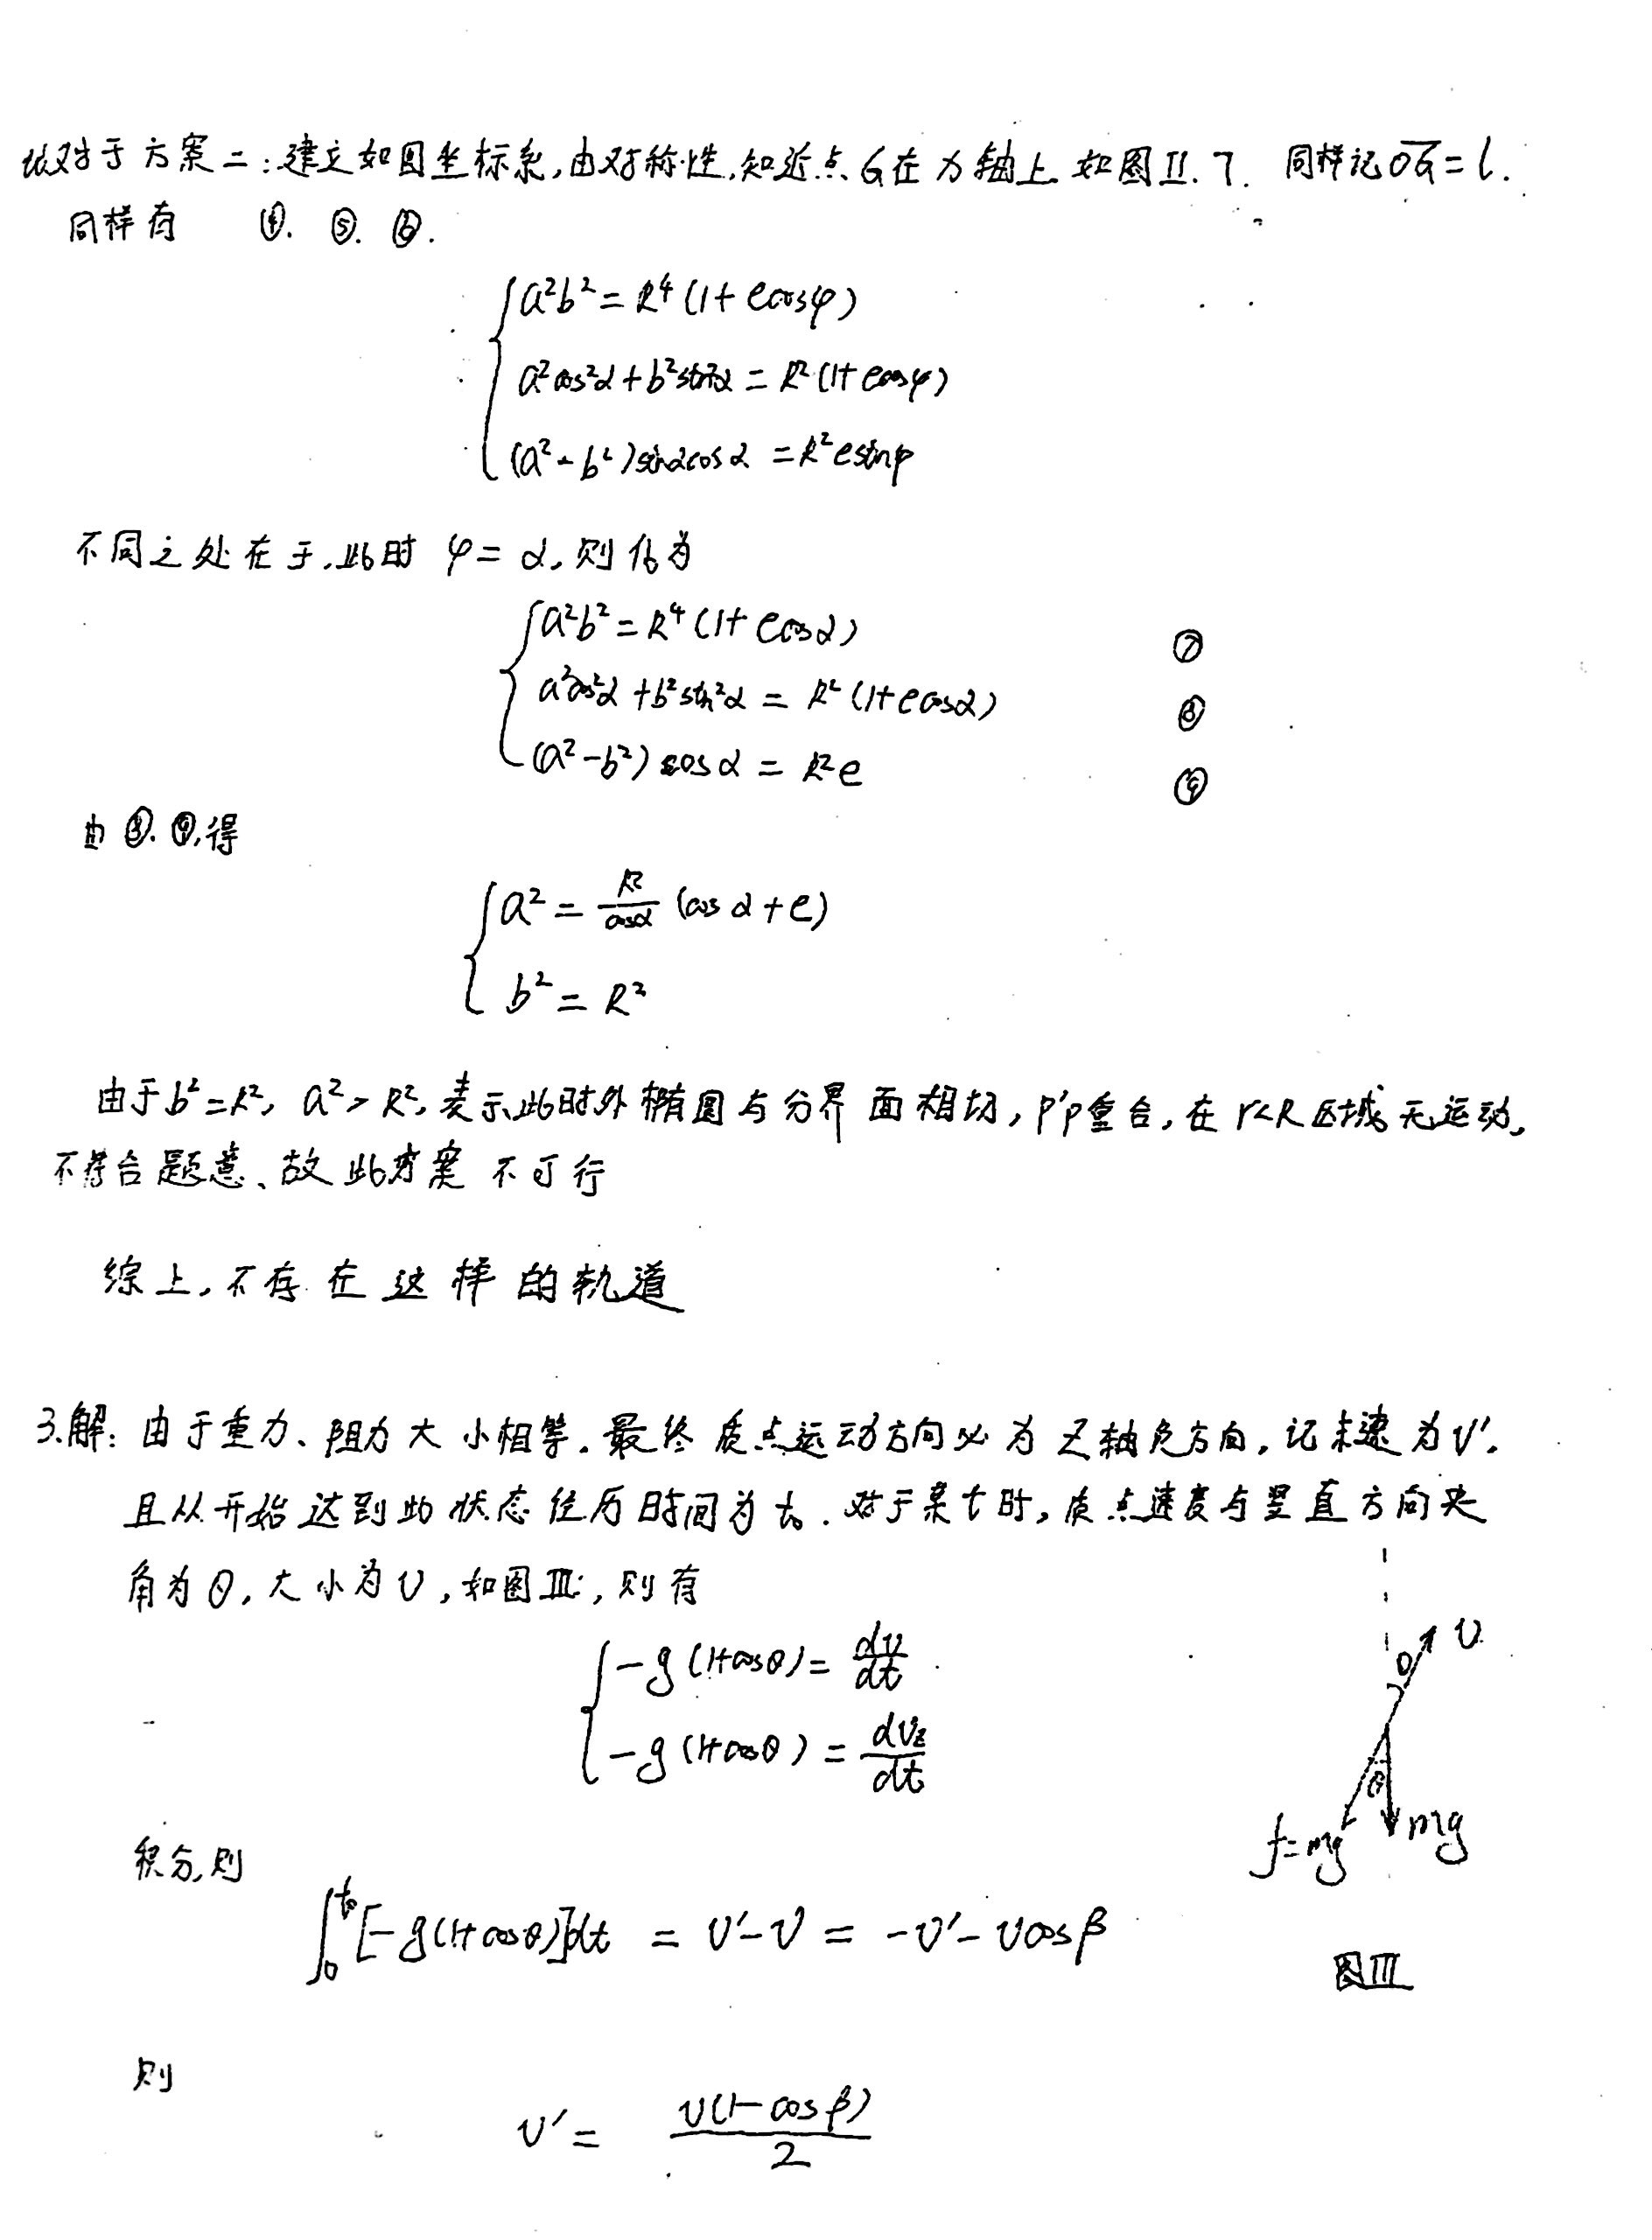 对于方案二:建立如图坐标系,由对称性,知近点G在为轴上如图II.7. 同样记OG=l.
同样有 ④. ⑤. ⑥.
a²b²=R⁴(1+ecosφ)
a²cos²α+b²sin²α=R²(1+ecosφ)
(a²-b²)sinαcosα=R²esinφ
不同之处在于,此时 φ=α,则化为
a²b²=R⁴(1+ecosα) ⑦
a²cos²α+b²sin²α=R²(1+ecosα) ⑧
(a²-b²)cosα=R²e ⑨
由⑧.⑨,得
a²=R²/cosα (cosα+e)
b²=R²
由于b²=R², a²>R²,表示此时外椭圆与分界面相切,P'P重合,在r<R区域无运动,
不符合题意、故此方案不可行
综上,不存在这样的轨道
3.解:由于重力、阻力大小相等.最终质点运动方向必为Z轴负方向,记末速为v'.
且从开始达到此状态经历时间为t₀.对于某t时,质点速度与竖直方向夹
角为θ,大小为v,如图III,则有
-g(1+cosθ)=dv/dt
-g(1+cosθ)=dv_z/dt
v
θ
θ
f=mg
mg
图III
积分,则
∫₀^t₀[-g(1+cosθ)]dt = v'-v = -v'-vcosβ
则
v'= v(1-cosβ)/2